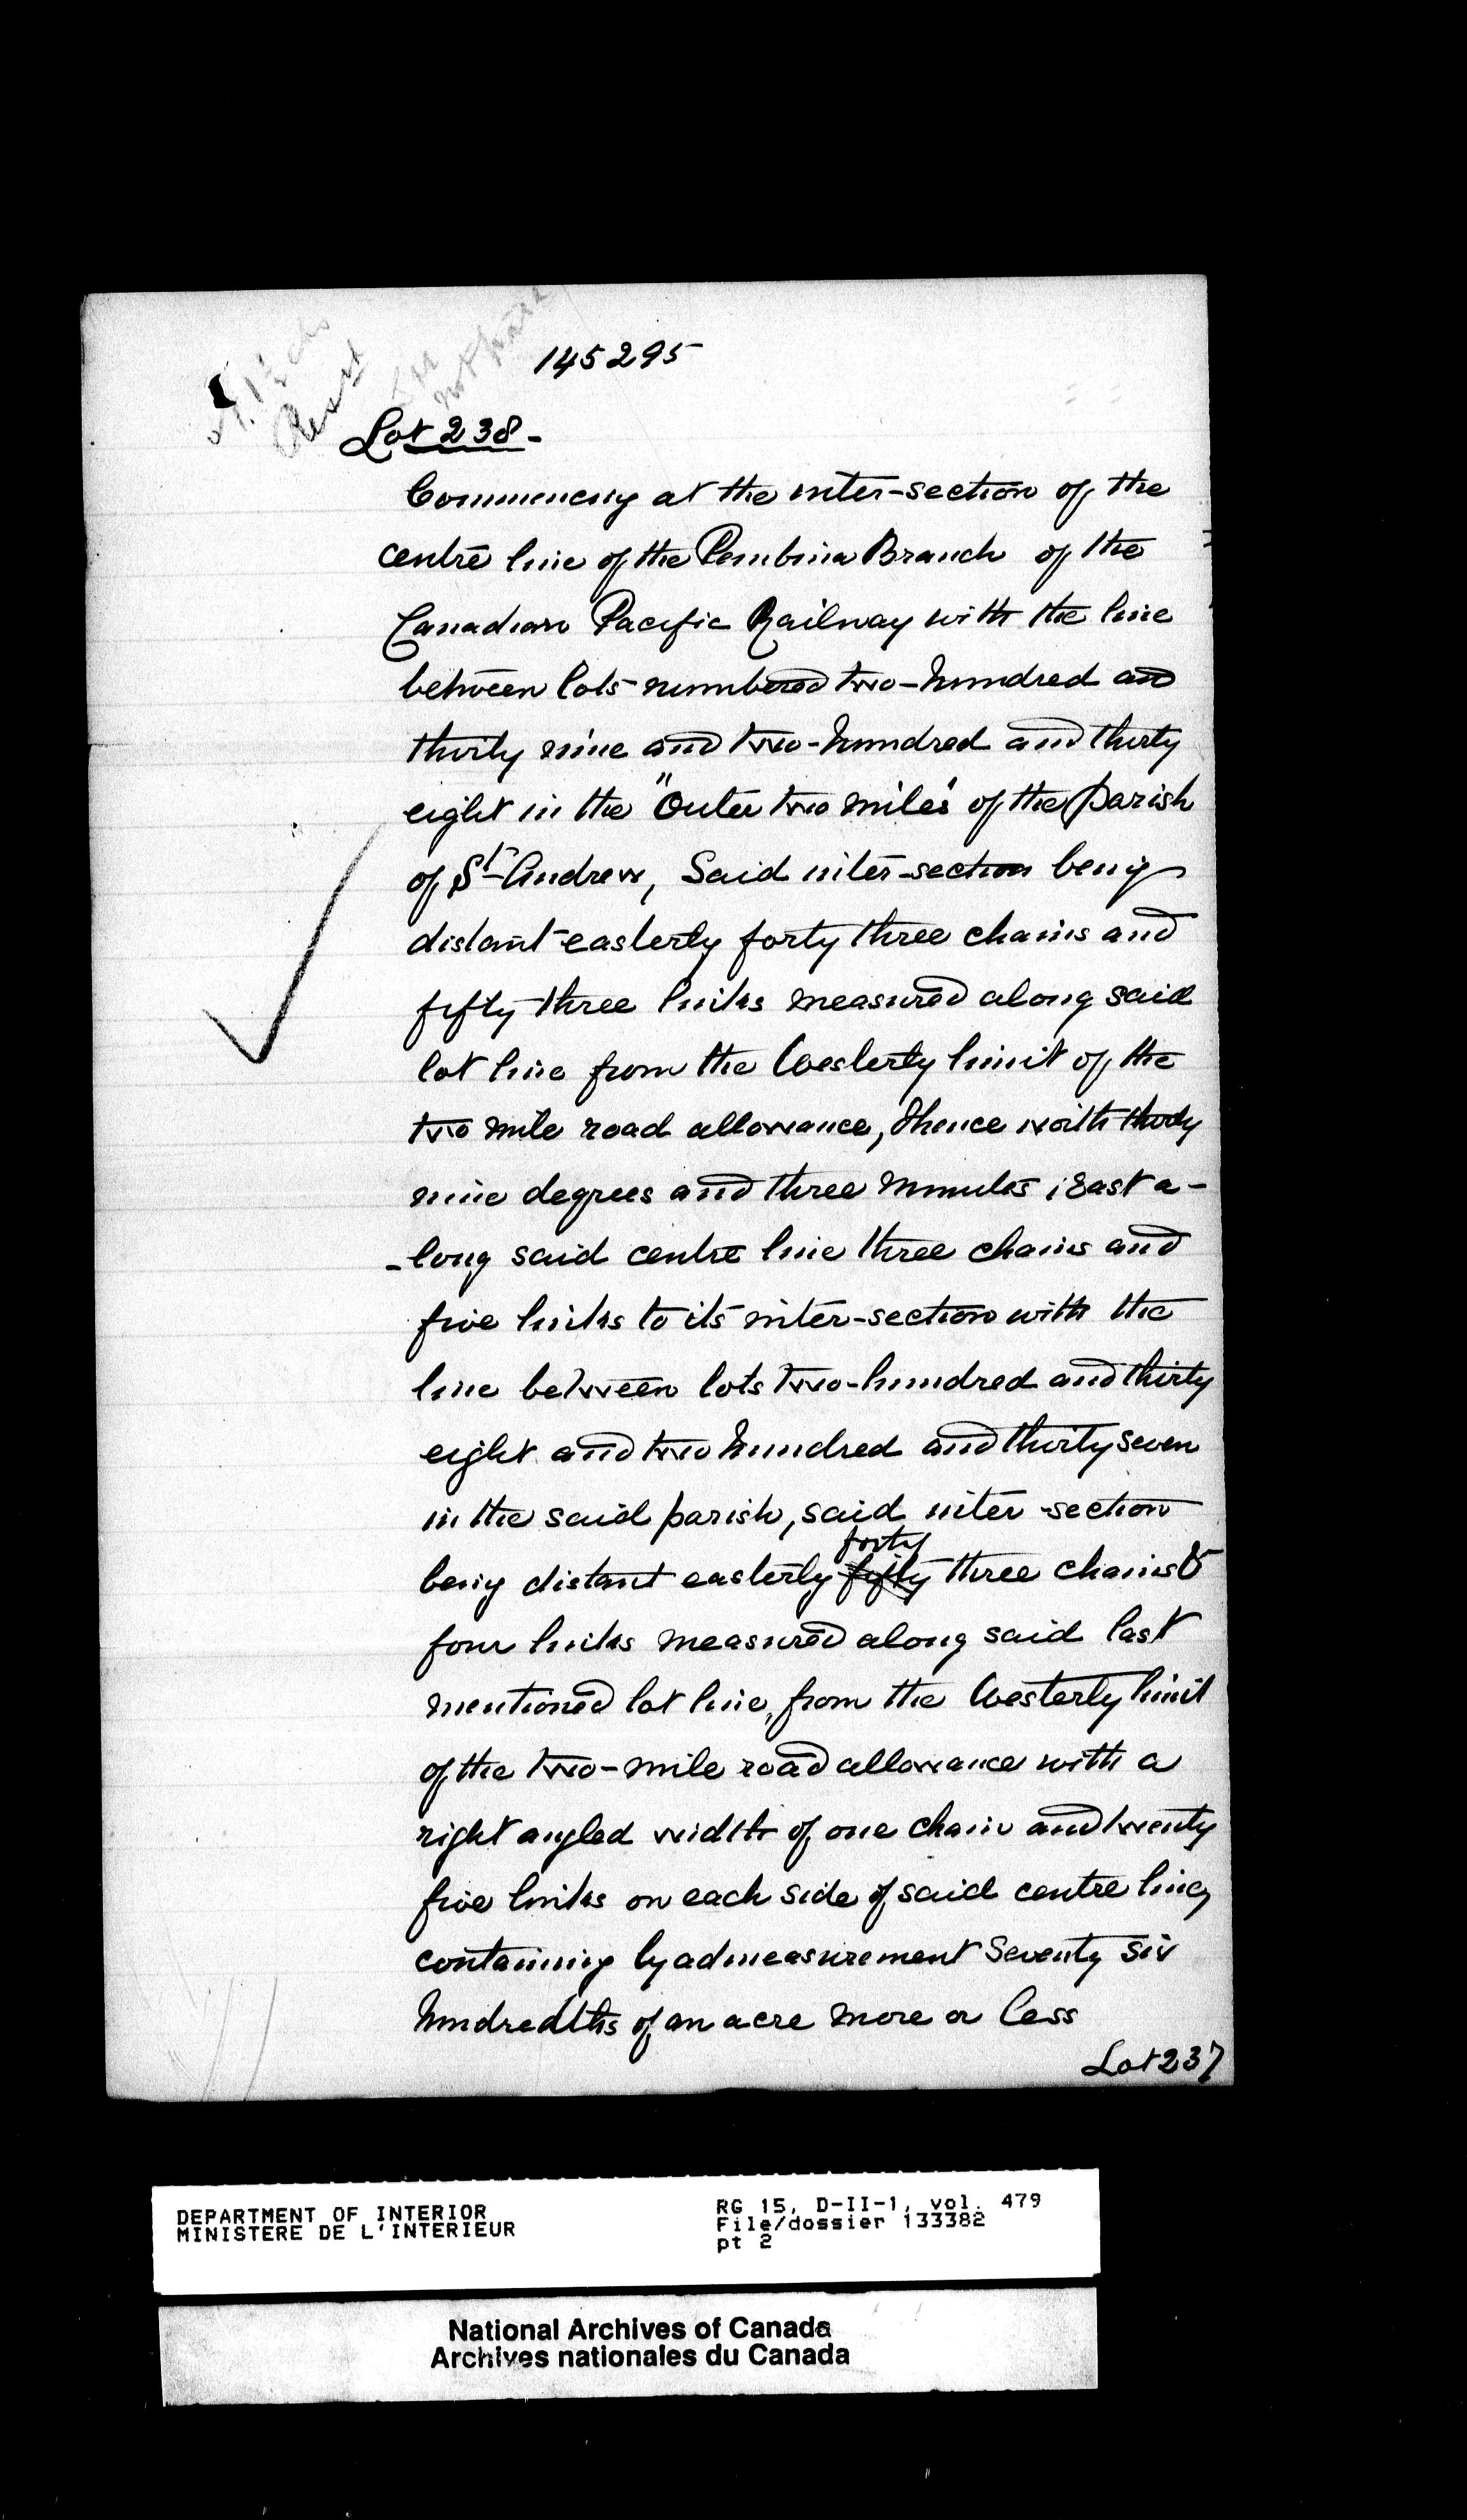 145295
Lot 238-
Commencing at the inter-section of the
centre line of the Pembina Branch of the
Canadian Pacific Railway with the line
between lots numbered two-hundred and
thirty nine and two-hundred and thirty
eight in the "Outer two miles" of the parish
of St Andrew, Said inter-section being
distant easterly forty three chains and
fifty three links measured along said
lot line from the Westerly limit of the
two mile road allowance, thence north thirty
nine degrees and three minutes, East a-
-long said centre line three chains and
five links to its inter-section with the
line between lots two-hundred and thirty
eight and two hundred and thirty seven
in the said parish, said inter-section
forty
being distant easterly fifty three chains &
four links measured along said last
mentioned lot line, from the Westerly limit
of the two-mile road allowance with a
right angled width of one chain and twenty
five links on each side of said centre line,
containing by admeasurement Seventy six
hundredths of an acre more or less
Lot 237
DEPARTMENT OF INTERIOR
MINISTERE DE L'INTERIEUR
RG 15, D-II-1, vol. 479
File/dossier 133382
pt 2
National Archives of Canada
Archives nationales du Canada